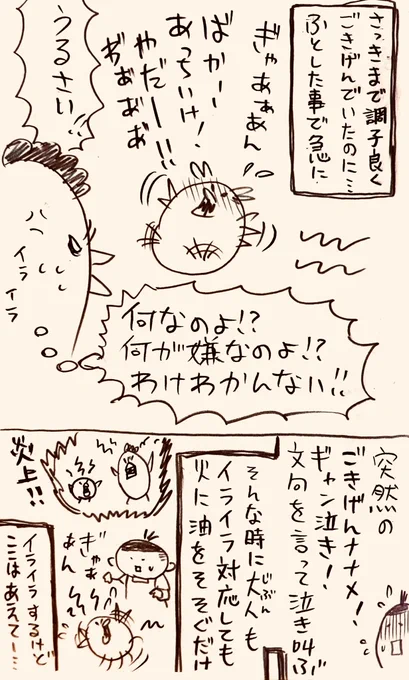 さっきまで調子良く
ごきげんでいたのに…
ふとした事で急に
ぎゃあぁあん
ばかー
あっちいけ!
やだーー!!
ぎぁぁぁぁ
うるさい!!
ハァ
イライラ
何なのよ!?
何が嫌なのよ!?
わけわかんない!!
突然の
ごきげんナナメ!
ギャン泣き!
文句を言って泣き叫ぶ
そんな時に大人も
じぶん
イライラ対応しても
火に油をそそぐだけ
炎上!!
ぎゃぁ
あん
イライラするけど
ここはあえてー…